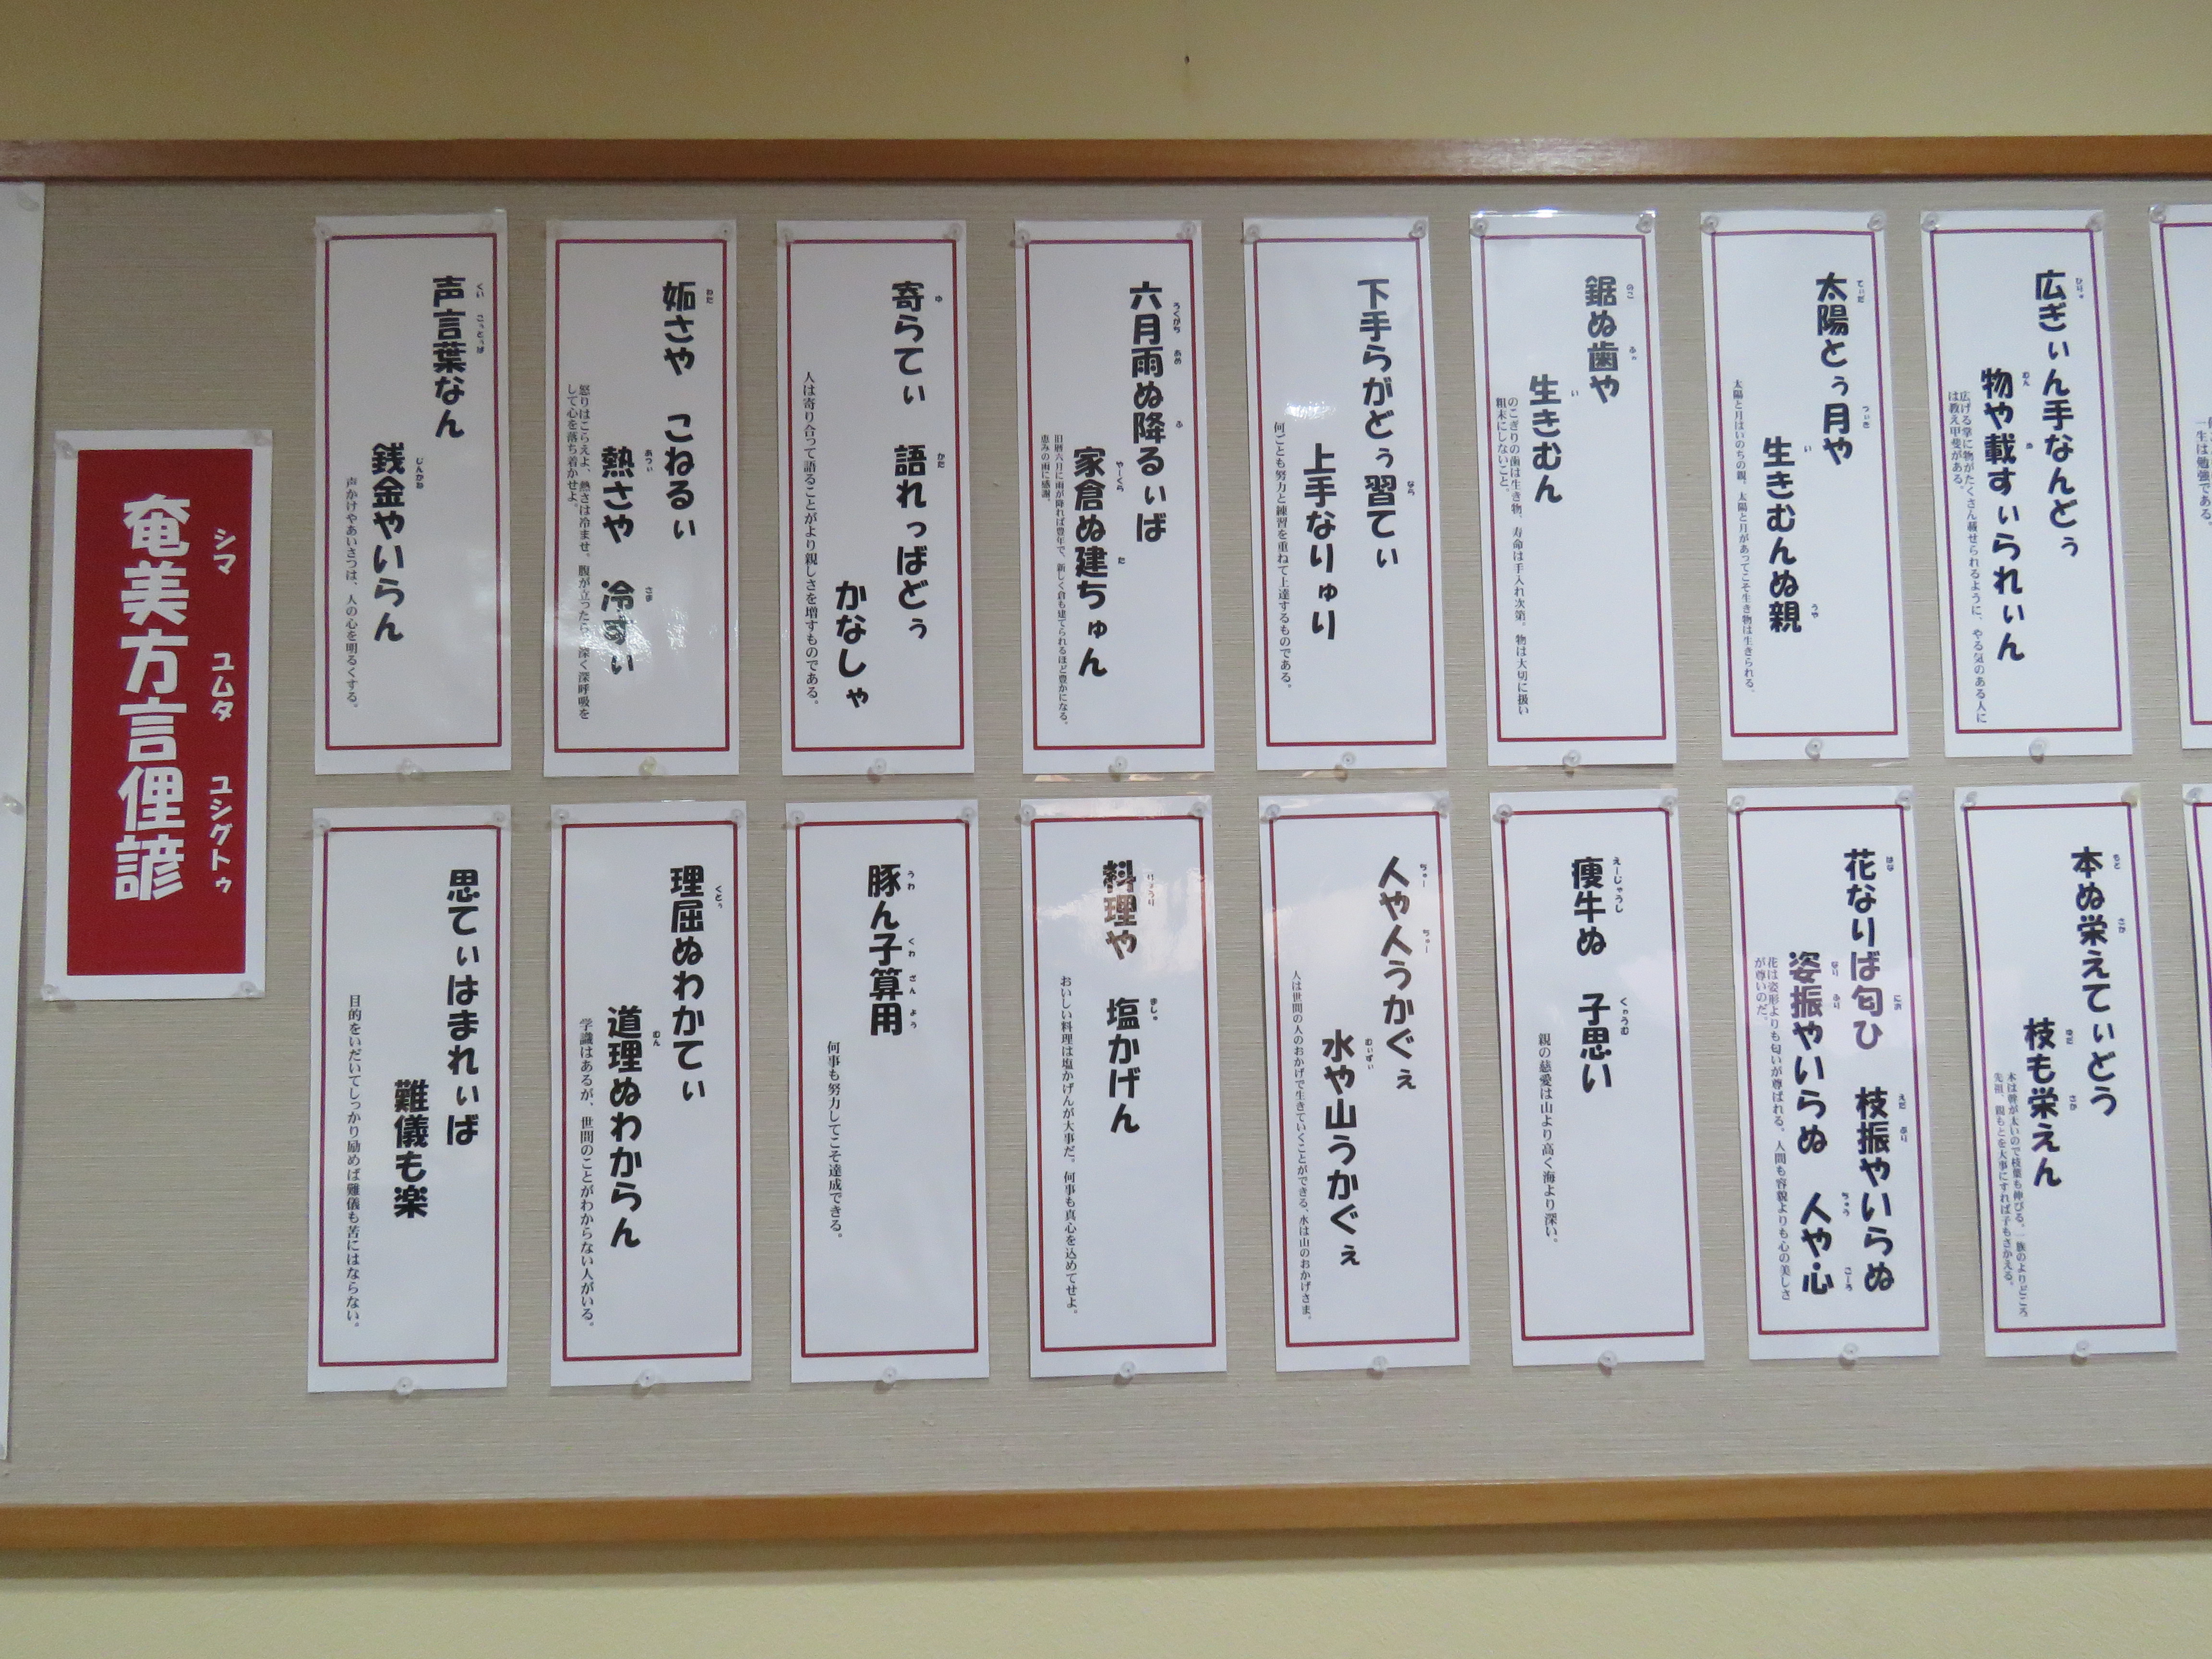 奄美方言俚諺
シマ ユムタ ユシグトゥ
声言葉なん
くい こっとぅば
銭金やいらん
じんかね
声かけやあいさつは、人の心を明るくする。
妬さや こねるぃ
わた
熱さや 冷
あつぃ さま
怒りはこらえよ、熱さは冷ませ。腹が立ったら
深く深呼吸を
して心を落ち着かせよ。
寄らてぃ 語れっばどぅ
ゆ かた
かなしゃ
人は寄り合って語ることがより親しさを増すものである。
六月雨ぬ降るぃば
ろくがち あめ ふ
家倉ぬ建ちゅん
やーくら た
旧暦六月に雨が降れば豊年で、新しく倉も建てられるほど豊かになる。
恵みの雨に感謝。
下手らがどぅ習てぃ
なら
上手なりゅり
何ごとも努力と練習を重ねて上達するものである。
鋸ぬ歯や
のこ
生きむん
い
のこぎりの歯は生き物、寿命は手入れ次第。物は大切に扱い
粗末にしないこと。
太陽とぅ月や
てぃだ つぃき
生きむんぬ親
い うや
太陽と月はいのちの親。太陽と月があってこそ生き物は生きられる。
広ぎぃん手なんどぅ
ひりゅ
物や載すぃられぃん
むん ぬ
広げる掌に物がたくさん載せられるように、やる気のある人に
は教え甲斐がある。
一生は勉強である。
思てぃはまれぃば
難儀も楽
目的をいだいてしっかり励めば難儀も苦にはならない。
理屈ぬわかてぃ
くとぅ
道理ぬわからん
むん
学識はあるが、世間のことがわからない人がいる。
豚ん子算用
うわ くわ さんよう
何事も努力してこそ達成できる。
料理や 塩かげん
りょうり ましゅ
おいしい料理は塩かげんが大事だ。何事も真心を込めてせよ。
人や人うかぐぇ
ちゅー ちゅー
水や山うかぐぇ
むぃずぃ
人は世間の人のおかげで生きていくことができる、水は山のおかげさま。
痩牛ぬ 子思い
えーじゃうし くゎうむ
親の慈愛は山より高く海より深い。
花なりば匂ひ 枝振やいらぬ
はな にお えだ ぶり
姿振やいらぬ 人や心
なり ふり ちゅう こーろ
花は姿形よりも匂いが尊ばれる。人間も容貌よりも心の美しさ
が尊いのだ。
本ぬ栄えてぃどう
もと さか
枝も栄えん
ゆだ さか
木は幹が太いので枝葉も伸びる。一族のよりどころ
先祖、親もとを大事にすれば子もさかえる。